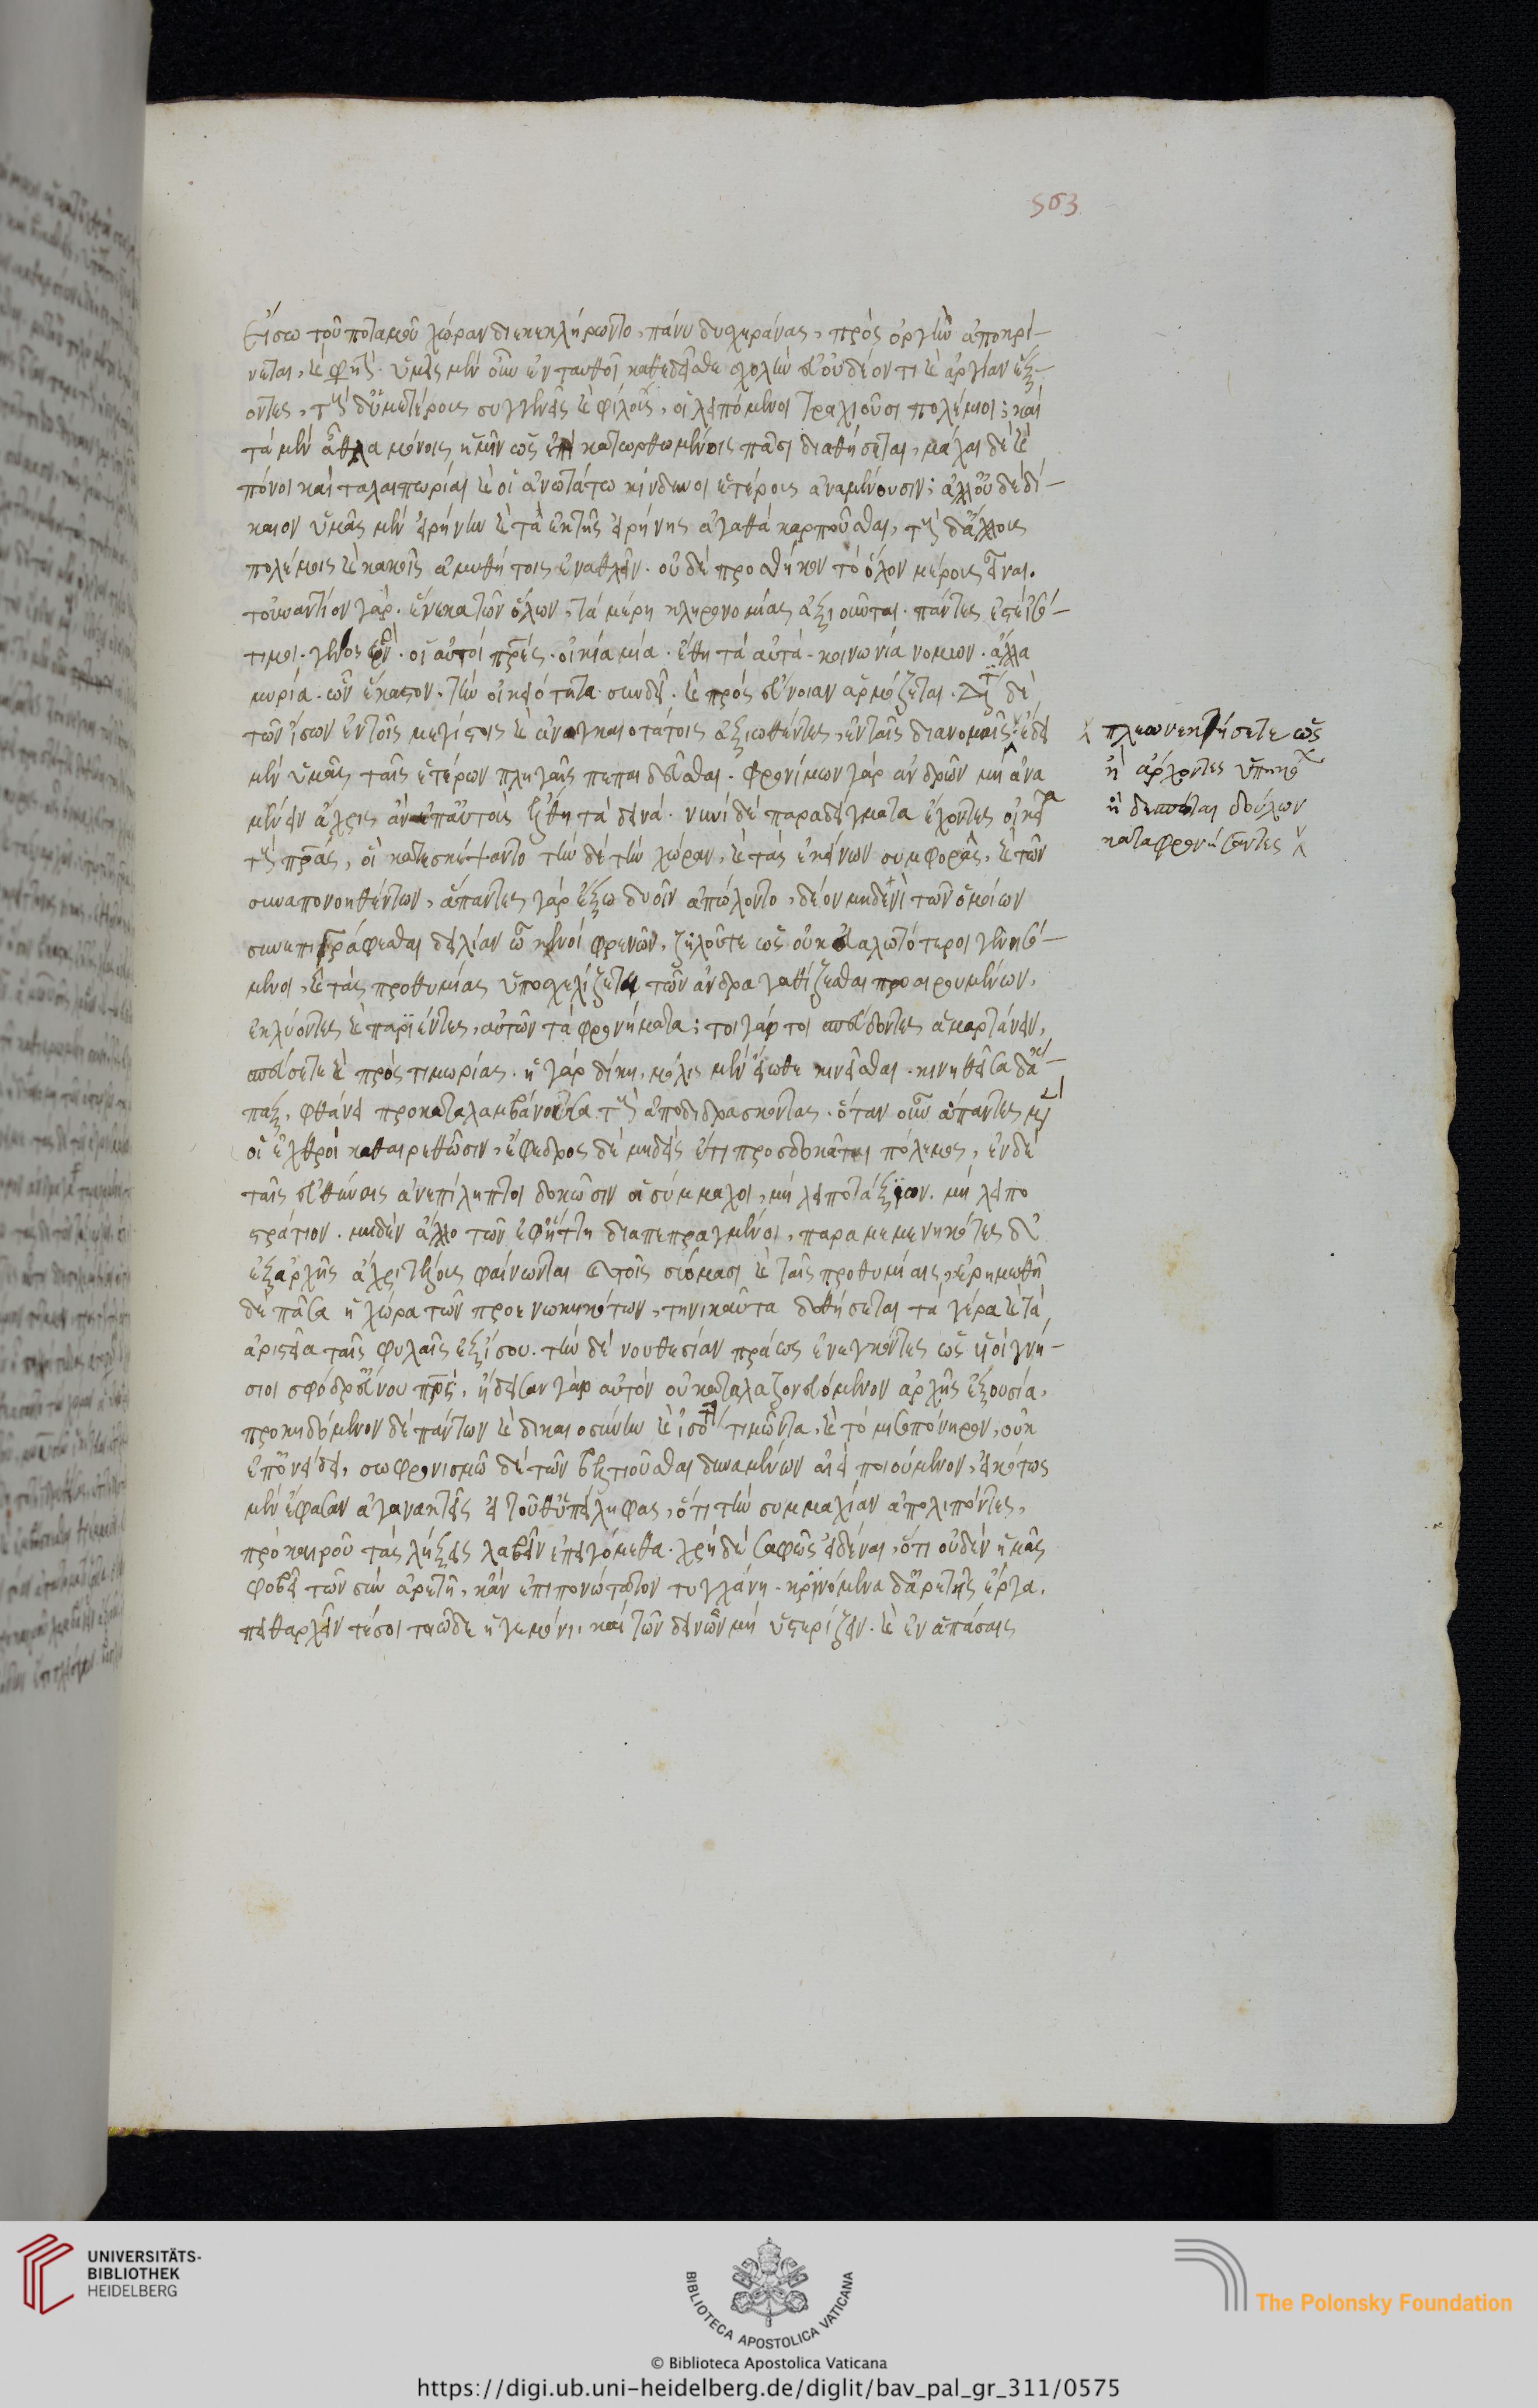 563
Εἴσω τοῦ ποταμοῦ χώραν διεκεκλήρωντο, πάνυ δυσχεράνας, πρὸς ὀργὴν ἀποκρί-
νεται, καὶ φησί· ὑμεῖς μὲν οὖν ἐνταυθοῖ καθεδεῖσθε σχολὴν ἐν οὐ δέοντι καὶ ἀργίαν ἕξ-
οντες, τοὺς δ' ὑμετέρους συγγενεῖς καὶ φίλους, οἱ λειπόμενοι τραχιοῦσι πολέμιοι; καὶ
τὰ μὲν ἆθλα μόνοις ἡμῖν ὡς ἐπὶ κατωρθωμένοις πᾶσι διαθήσεται, μάχαι δὲ καὶ
πόνοι καὶ ταλαιπωρίαι καὶ οἱ ἀνωτάτω κίνδυνοι ἑτέροις ἀναμένουσιν; ἀλλ' οὐδὲ δί-
καιον ὑμᾶς μὲν εἰρήνην καὶ τὰ ἐκ τῆς εἰρήνης ἀγαθὰ καρποῦσθαι, τοὺς δ' ἄλλους
πολέμοις καὶ κακοῖς ἀμυθήτοις ἐναθλεῖν. οὐδὲ προσθήκην τὸ ὅλον μέρους εἶναι.
τοὐναντίον γὰρ. ἕνεκα τῶν ὅλων, τὰ μέρη κληρονομίας ἀξιοῦται. πάντες ἐστὲ ἰσό-
τιμοι. γένος ἕν. οἱ αὐτοὶ πρες. οἰκία μία. ἔθη τὰ αὐτὰ. κοινωνία νόμων. ἄλλα
μυρία. ὧν ἕκαστον. τὴν οἰκειότητα συνδεῖ. καὶ πρὸς εὔνοιαν ἁρμόζεται. Διὰ τί δὲ
τῶν ἴσων ἐν τοῖς μεγίστοις καὶ ἀναγκαιοτάτοις ἀξιωθέντες, ἐν ταῖς διανομαῖς ἔδει
πλεονεκτήσετε ὡς
ἢ ἄρχοντες ὑπηκό
ἢ δεσπόται δούλων
καταφρονήσοντες
μὲν ὑμᾶς ταῖς ἑτέρων πληγαῖς πεπαιδεῦσθαι. φρονίμων γὰρ ἀνδρῶν μὴ ἀνα
μένειν ἄχρις ἂν ἐπ' αὐτοὺς ἔλθη τὰ δεινά. νυνὶ δὲ παραδείγματα ἔχοντες οἰκεῖα
τοὺς πρας, οἳ κατεσκέψαντο τήνδε τὴν χώραν, καὶ τὰς ἐκείνων συμφορὰς, καὶ τῶν
συναπονοηθέντων, ἅπαντες γὰρ ἔξω δυοῖν ἀπώλοντο, δέον μηδενὶ τῶν ὁμοίων
συνεπιγράφεσθαι δειλίαν ὦ κενοὶ φρενῶν, ζηλοῦτε ὡς οὐκ εὐαλωτότεροι γενησό-
μενοι, καὶ τὰς προθυμίας ὑποσκελίζετε τῶν ἀνδραγαθίζεσθαι προαιρουμένων,
ἐκλύοντες καὶ παριέντες, αὐτῶν τὰ φρονήματα; τοιγάρτοι σπεύδοντες ἁμαρτάνειν,
σπεύσετε καὶ πρὸς τιμωρίας. ἡ γὰρ δίκη, μόλις μὲν εἴωθε κινεῖσθαι. κινηθεῖσα δ' ἅ-
παξ, φθάνει προκαταλαμβάνουσα τοὺς ἀποδιδράσκοντας. ὅταν οὖν ἅπαντες μὲν
οἱ ἐχθροὶ καθαιρεθῶσιν, ἔφεδρος δὲ μηδεὶς ἔτι προσδοκᾶται πόλεμος, ἐν δὲ
ταῖς εὐθύναις ἀνεπίληπτοι δοκῶσιν οἱ σύμμαχοι, μὴ λειποτάξιον. μὴ λειπο
στράτιον. μηδὲν ἄλλο τῶν ἐφ' ἥττη διαπεπραγμένοι, παραμεμενηκότες δὲ
ἐξ ἀρχῆς ἄχρι τέλους φαίνωνται καὶ τοῖς σώμασι καὶ ταῖς προθυμίαις, ἐρημωθῆ
δὲ πᾶσα ἡ χώρα τῶν προενωκηκότων, τηνικαῦτα δοθήσεται τὰ γέρα καὶ τὰ
ἀριστεῖα ταῖς φυλαῖς ἐξίσου. τὴν δὲ νουθεσίαν πράως ἐνεγκόντες ὡς υἱοὶ γνή-
σιοι σφόδρ' εὔνου πρς, ᾔδεσαν γὰρ αὐτὸν οὐ καταλαζονευόμενον ἀρχῆς ἐξουσία,
προκηδόμενον δὲ πάντων καὶ δικαιοσύνην καὶ ἰσότητα τιμῶντα, καὶ τὸ μισοπόνηρον, οὐκ
ἐπ' ὀνείδει, σωφρονισμῷ δὲ τῶν βελτιοῦσθαι δυναμένων ἀεὶ ποιούμενον, εἰκότως
μὲν ἔφασαν ἀγανακτεῖς εἰ τοῦθ' ὑπείληφας, ὅτι τὴν συμμαχίαν ἀπολιπόντες,
πρὸ καιροῦ τὰς λήξεις λαβεῖν ἐπειγόμεθα. χρὴ δὲ σαφῶς εἰδέναι, ὅτι οὐδὲν ἡμᾶς
φοβεῖ τῶν σὺν ἀρετῇ, κἂν ἐπιπονώτατον τυγχάνη. κρινόμενα δ' ἀρετῆς ἔργα,
πειθαρχεῖν τέ σοι τοιῷδε ἡγεμόνι, καὶ τῶν δεινῶν μὴ ὑστερίζειν. καὶ ἐν ἁπάσαις
UNIVERSITÄTS-
BIBLIOTHEK
HEIDELBERG
BIBLIOTECA APOSTOLICA VATICANA
The Polonsky Foundation
© Biblioteca Apostolica Vaticana
https://digi.ub.uni-heidelberg.de/diglit/bav_pal_gr_311/0575